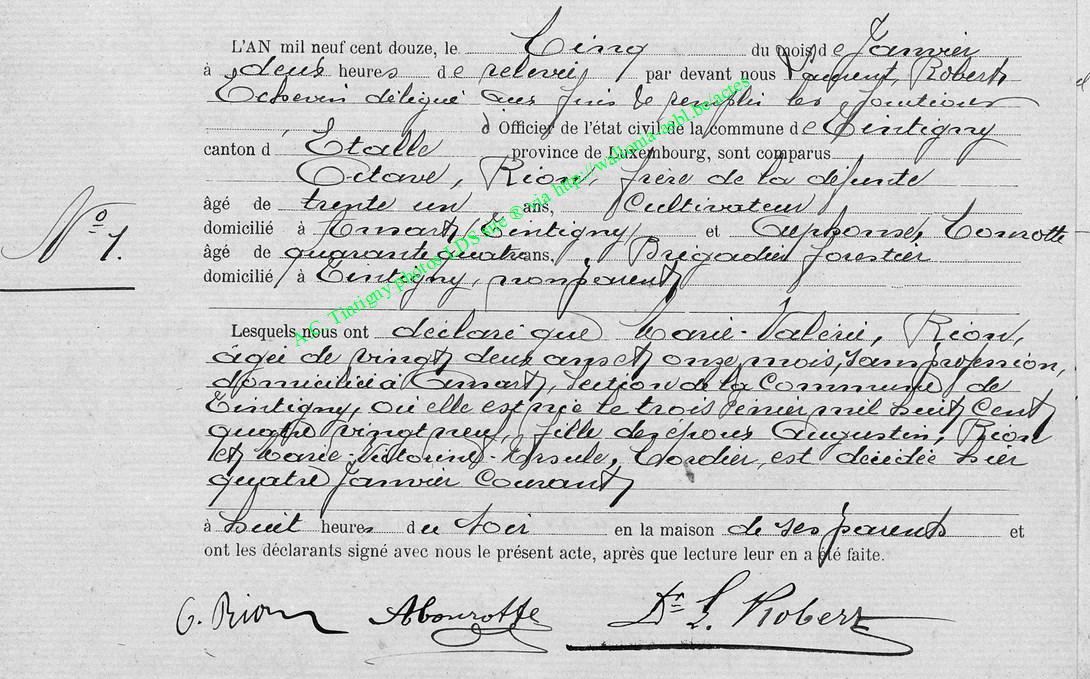 L'AN mil neuf cent douze, le Cinq du mois de Janvier
à deux heures de relevée par devant nous Laurent, Robert
Echevin délégué aux fins de remplir les fonctions
d'Officier de l'état civil de la commune de Tintigny
canton d'Etalle province de Luxembourg, sont comparus
Octave, Rion, frère de la défunte
âgé de trente un ans, Cultivateur
domicilié à Ansart, Tintigny et Alphonse,
âgé de quarante quatre ans, Brigadier forestier
domicilié à Tintigny, non parent
N° 1.
Lesquels nous ont déclaré que Marie-Valérie, Rion,
âgée de vingt deux ans et onze mois, sans profession,
domiciliée à Ansart, section de la Commune de
Tintigny, où elle est née le trois février mil huit Cent
quatre vingt neuf, fille des époux Augustin, Rion
et Marie-Victorine-Ursule, Cordier, est décédée hier
quatre Janvier Courant
à huit heures du soir en la maison de ses parents et
ont les déclarants signé avec nous le présent acte, après que lecture leur en a été faite.
O. Rion Dr L. Robert
A.C. Tintigny photos LDS mie ® via http://wallonia.asbl.be/actes